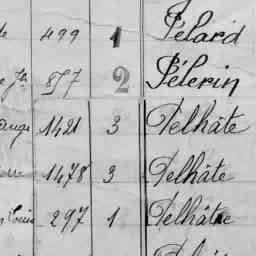 499 1 Pélard
2 Pélerin
1421 3 Pelhâte
1478 3 Pelhâte
Louis 297 1 Pelhâte